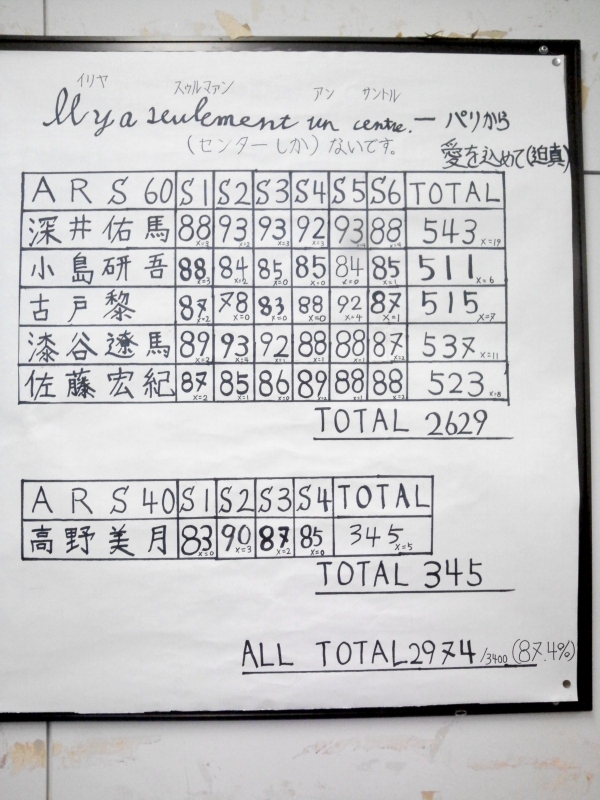 イリヤ スゥルマァン アン サントル
Il y a seulement un centre. ー パリから
(センターしか)ないです。 愛を込めて(迫真)
ARS60 S1 S2 S3 S4 S5 S6 TOTAL
深井佑馬 88 93 93 92 93 88 543 x=19
小島研吾 88 84 85 85 84 85 511 x=6
古戸黎 87 78 83 88 92 87 515 x=7
漆谷遼馬 89 93 92 88 88 87 537 x=11
佐藤宏紀 87 85 86 89 88 88 523 x=8
TOTAL 2629
ARS40 S1 S2 S3 S4 TOTAL
高野美月 83 x=0 90 x=3 87 x=2 85 x=0 345 x=5
TOTAL 345
ALL TOTAL 2974/3400 (87.4%)